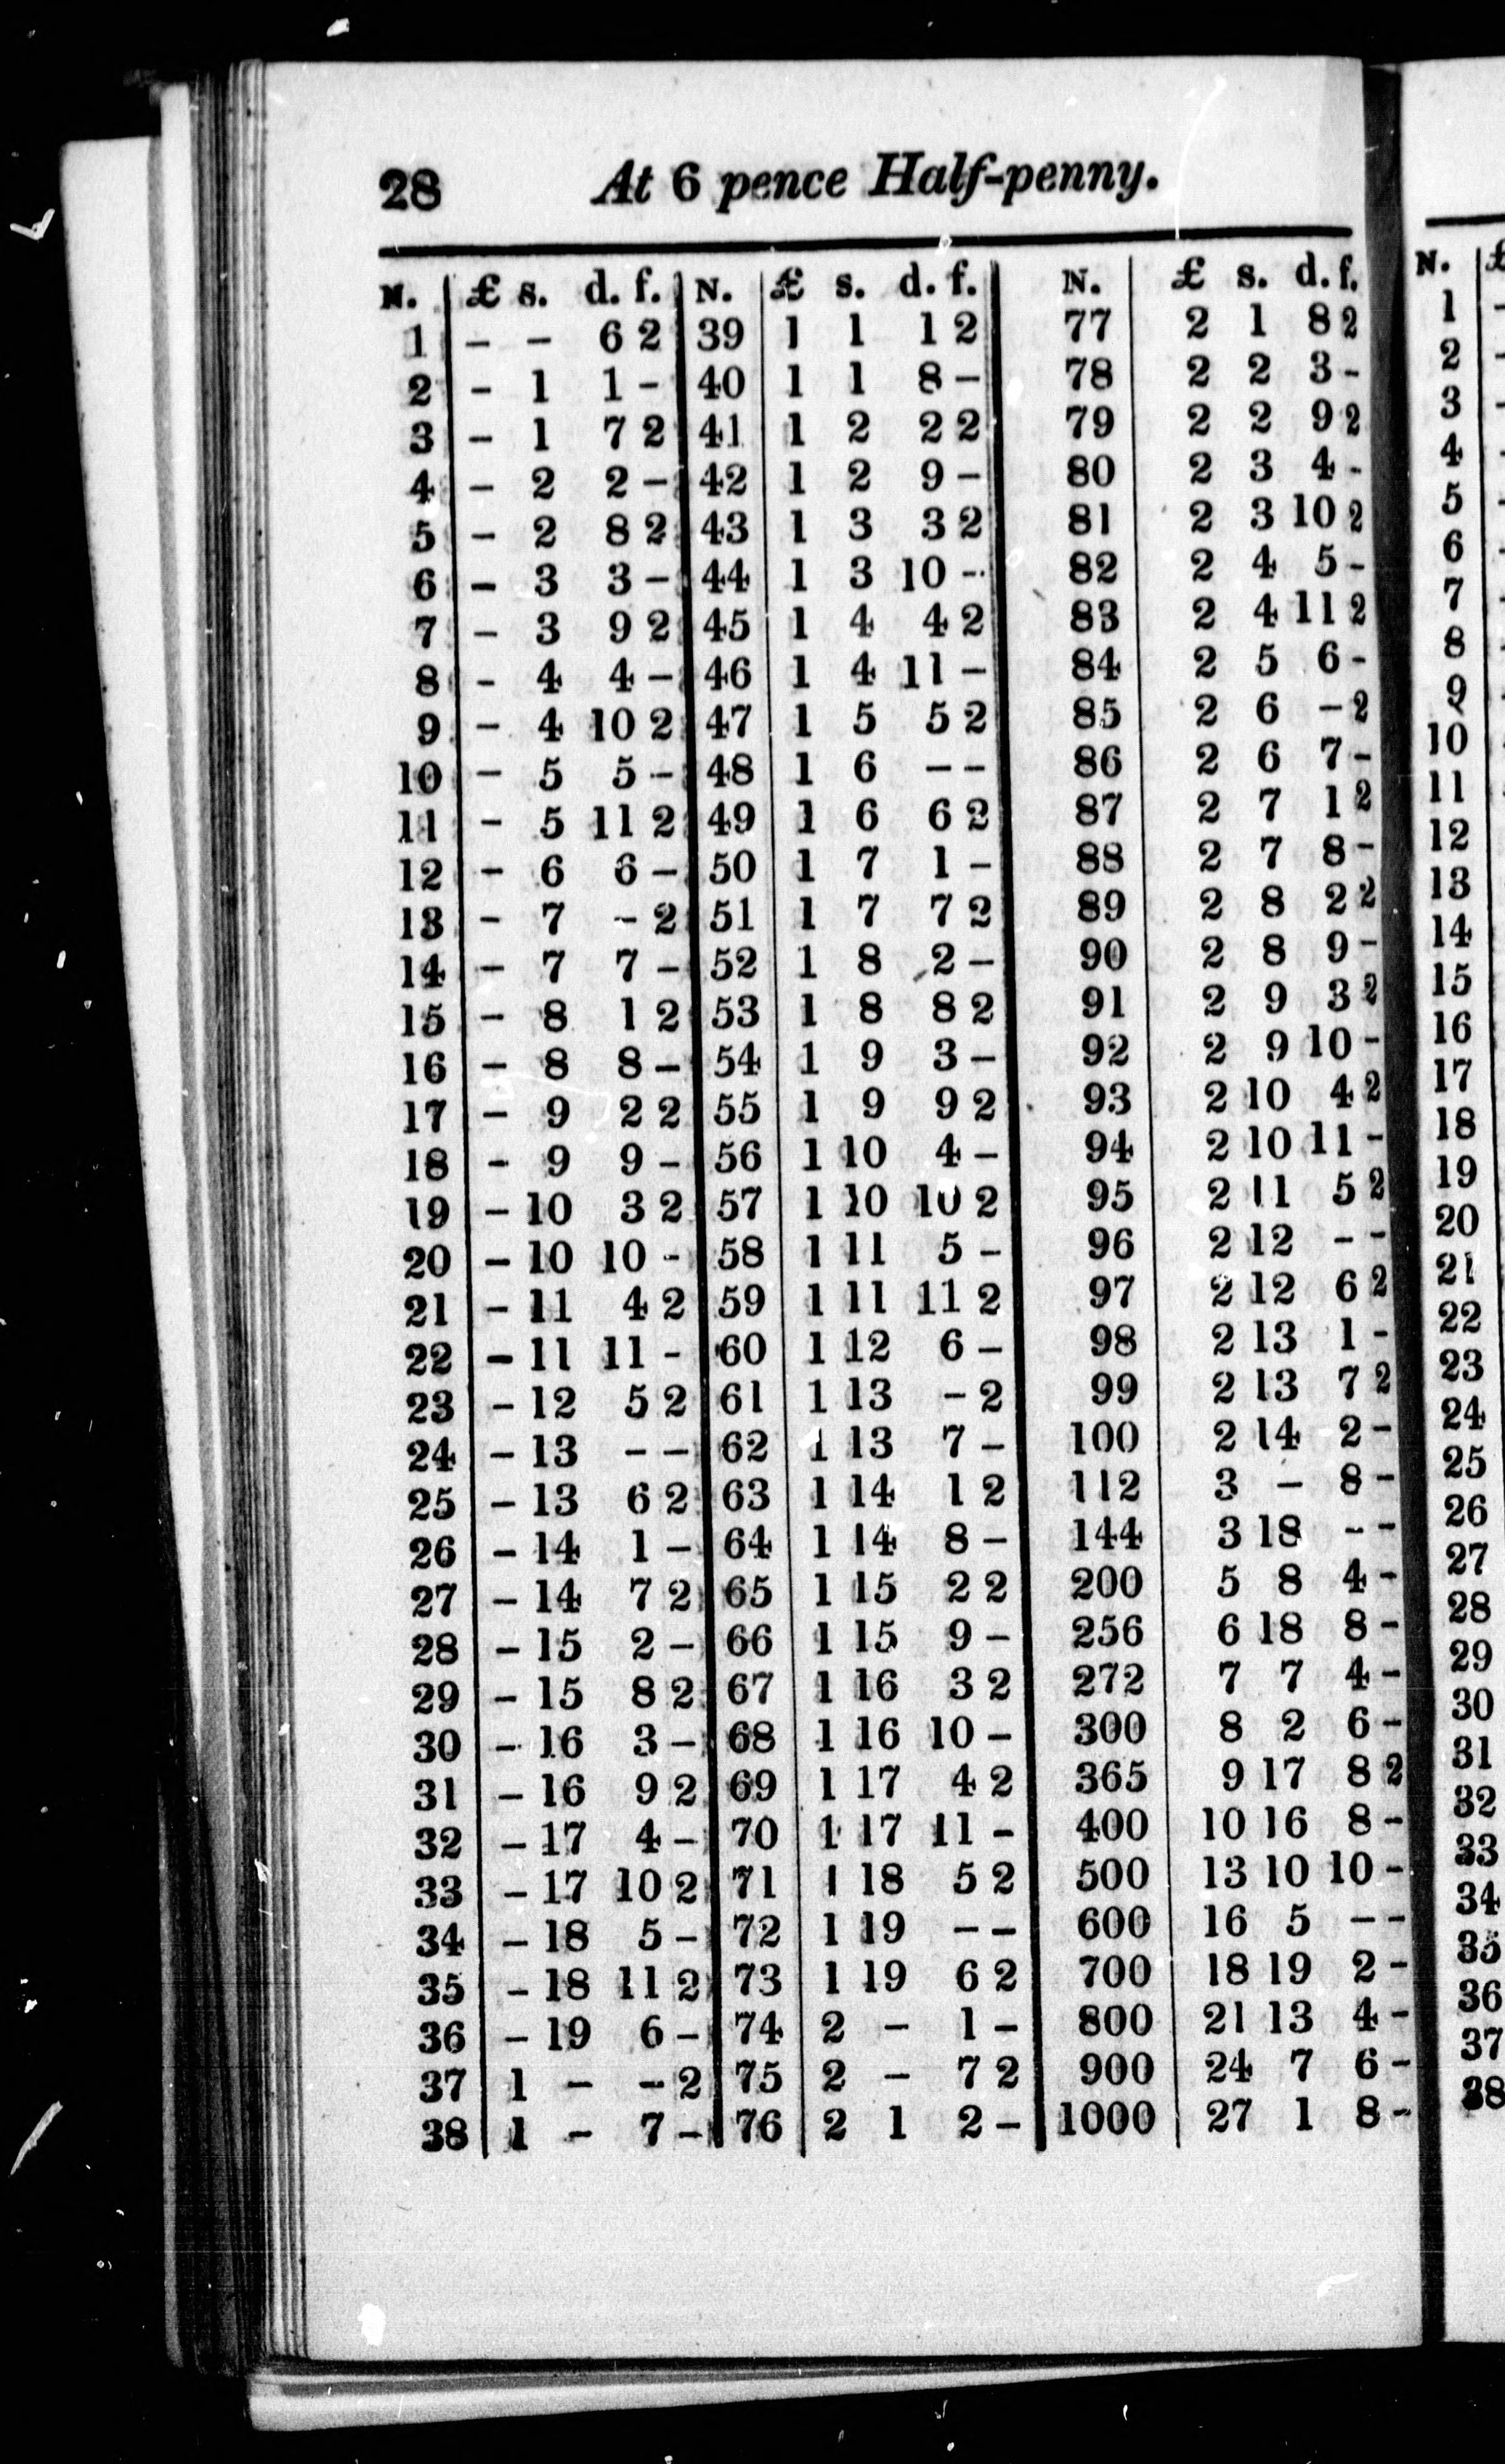 28 At 6 pence Half-penny.
N. £ s. d. f. N. £ s. d. f. N. £ s. d. f.
1 - - 6 2 39 1 1 1 2 77 2 1 8 2
2 - 1 1 - 40 1 1 8 - 78 2 2 3 -
3 - 1 7 2 41 1 2 2 2 79 2 2 9 2
4 - 2 2 - 42 1 2 9 - 80 2 3 4 -
5 - 2 8 2 43 1 3 3 2 81 2 3 10 2
6 - 3 3 - 44 1 3 10 - 82 2 4 5 -
7 - 3 9 2 45 1 4 4 2 83 2 4 11 2
8 - 4 4 - 46 1 4 11 - 84 2 5 6 -
9 - 4 10 2 47 1 5 5 2 85 2 6 - 2
10 - 5 5 - 48 1 6 - - 86 2 6 7 -
11 - 5 11 2 49 1 6 6 2 87 2 7 1 2
12 - 6 6 - 50 1 7 1 - 88 2 7 8 -
13 - 7 - 2 51 1 7 7 2 89 2 8 2 2
14 - 7 7 - 52 1 8 2 - 90 2 8 9 -
15 - 8 1 2 53 1 8 8 2 91 2 9 3 2
16 - 8 8 - 54 1 9 3 - 92 2 9 10 -
17 - 9 2 2 55 1 9 9 2 93 2 10 4 2
18 - 9 9 - 56 1 10 4 - 94 2 10 11 -
19 - 10 3 2 57 1 10 10 2 95 2 11 5 2
20 - 10 10 - 58 1 11 5 - 96 2 12 - -
21 - 11 4 2 59 1 11 11 2 97 2 12 6 2
22 - 11 11 - 60 1 12 6 - 98 2 13 1 -
23 - 12 5 2 61 1 13 - 2 99 2 13 7 2
24 - 13 - - 62 1 13 7 - 100 2 14 2 -
25 - 13 6 2 63 1 14 1 2 112 3 - 8 -
26 - 14 1 - 64 1 14 8 - 144 3 18 - -
27 - 14 7 2 65 1 15 2 2 200 5 8 4 -
28 - 15 2 - 66 1 15 9 - 256 6 18 8 -
29 - 15 8 2 67 1 16 3 2 272 7 7 4 -
30 - 16 3 - 68 1 16 10 - 300 8 2 6 -
31 - 16 9 2 69 1 17 4 2 365 9 17 8 2
32 - 17 4 - 70 1 17 11 - 400 10 16 8 -
33 - 17 10 2 71 1 18 5 2 500 13 10 10 -
34 - 18 5 - 72 1 19 - - 600 16 5 - -
35 - 18 11 2 73 1 19 6 2 700 18 19 2 -
36 - 19 6 - 74 2 - 1 - 800 21 13 4 -
37 1 - - 2 75 2 - 7 2 900 24 7 6 -
38 1 - 7 - 76 2 1 2 - 1000 27 1 8 -
N. £
1 -
2 -
3 -
4 -
5 -
6 -
7 -
8
9
10
11
12
13
14
15
16
17
18
19
20
21
22
23
24
25
26
27
28
29
30
31
32
33
34
35
36
37
38